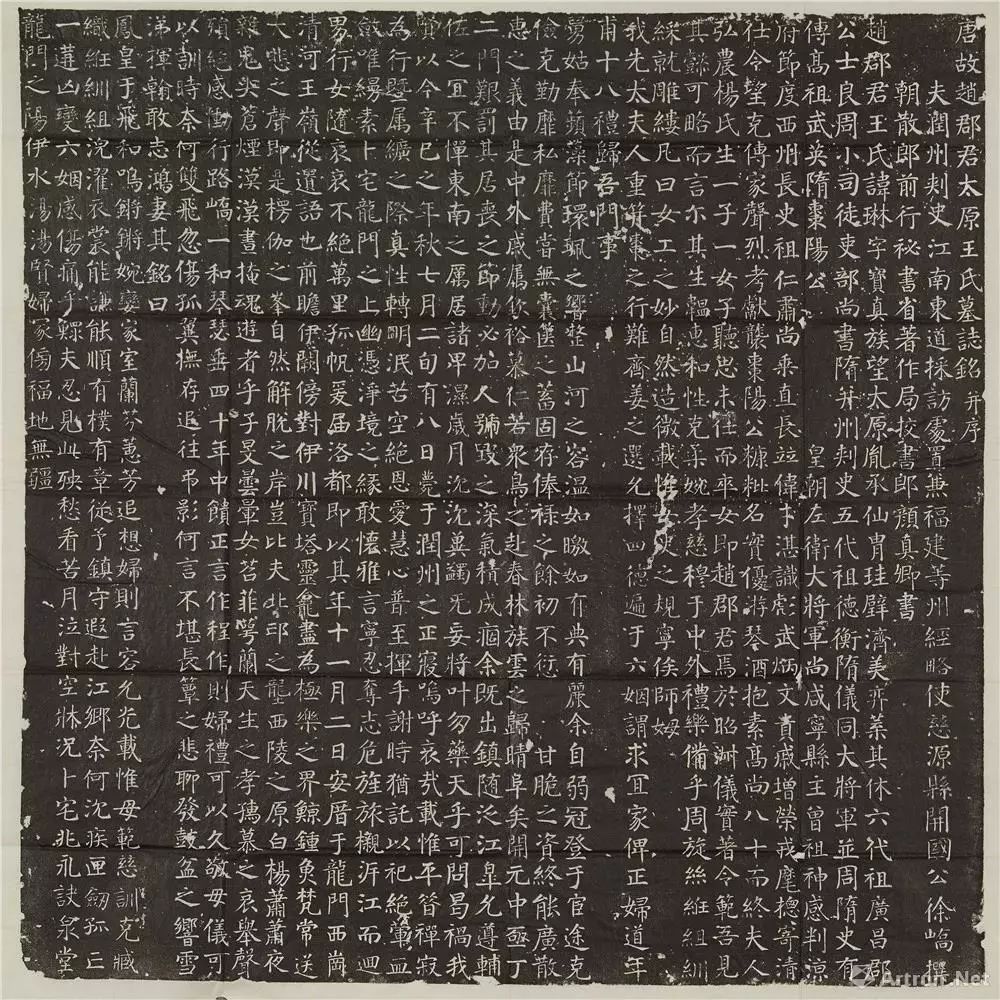 唐故趙郡君太原王氏墓誌銘并序
夫潤州刾史江南東道採訪處置兼福建等州經略使慈源縣開國公徐嶠撰
朝散郎前行秘書省著作局校書郎顏真卿書
趙郡君王氏諱琳字寶真族望太原胤承仙胄珪璧濟美弈葉其休六代祖廣昌郡
公士良周小司徒吏部尚書隋并州刾史五代祖德衡隋儀同大將軍並周隋史有
傳髙祖武英隋棗陽公 皇朝左衛大將軍尚咸寧縣主曾祖神感判涼
府節度西州長史祖仁肅尚乗直長竝偉才湛識彪武炳文貢戚增榮戎麾樬寄清
仕令望克傳家聲烈考獻襲棗陽公糠粃名實優游琴酒抱素髙尚八十而終夫人
弘農楊氏生一子一女子聽思未仕而卒女即趙郡君焉於昭淑儀實著令範吾見
其餘可略而言尒其生韞惠和性克柔婉孝慈穆于中外禮樂備乎周旋絲絍組紃
綵就雕縷凡曰女工之妙自然造微載惟 史之規寧俟師姆
我先太夫人重笄棗之行難齊姜之選允擇四德遍于六姻謂求宜家俾正婦道年
甫十八禮歸吾門事
舅姑奉蘋藻節環珮之響整山河之容温如暾如有典有麗余自弱冠登于官途克
儉克勤靡私靡費嘗無囊篋之蓄固存俸祿之餘初不衍 甘脆之資終能廣散
惠之義由是中外戚属欽裕慕仁若衆鳥之赴春林族雲之歸晴阜矣開元中亟丁
二門艱罰其居喪之節動必加人號毀之深氣積成痼余既出鎮随之江臯允尊輔
佐之宜不憚東南之厲居諸卑濕歲月沈沈冀蠲无妄將叶勿藥天乎可問曷禍我
賢以今辛巳之年秋七月二旬有八日薨于潤州之正寢嗚呼哀㢤載惟平昔禪寂
為行暨属纊之際真性轉明泯苦空絶恩愛慧心普至揮手謝時猶託以祀絶葷血
斂唯縵素卜宅龍門之上幽憑淨境之緣敢懷雅言寧忍奪志危旌旅櫬泝江而迴
男行女隨哀哀不絶萬里孤帆爰屆洛都即以其年十一月二日安厝于龍門西崗
清河王嶺從遷語也前瞻伊闕傍對伊川寶塔靈龕盡為極樂之界鯨鍾魚梵常送
大悲之聲即是楞伽之峯自然解脱之岸豈比夫北邙之壟西陵之原白楊蕭蕭夜
聚鬼哭蒼煙漠漠晝掩魂遊者乎子旻曇暈女苕菲萼蘭天生之孝㹟慕之哀舉聲
殞絶感慟行路嶠一和琴瑟垂四十年中饋正言作程作則婦禮可以久敬母儀可
以訓時奈何雙飛忽傷孤翼撫存追往弔影何言不堪長簟之悲聊發鼓盆之響雪
涕揮翰敢志鴻妻其銘曰
鳳皇于飛和鳴鏘鏘婉孌家室蘭芬蕙芳追想婦則言容允光載惟母範慈訓克臧
織絍紃組浣濯衣裳能謙能順有樸有章從予鎮守遐赴江鄉奈何沈疾匣劒孤亡
一遘凶變六姻感傷痛乎鰥夫忍見此殃愁看苦月泣對空牀況卜宅兆永訣泉堂
龍門之陽伊水湯湯賢婦家傷福地無疆
Artron.Net